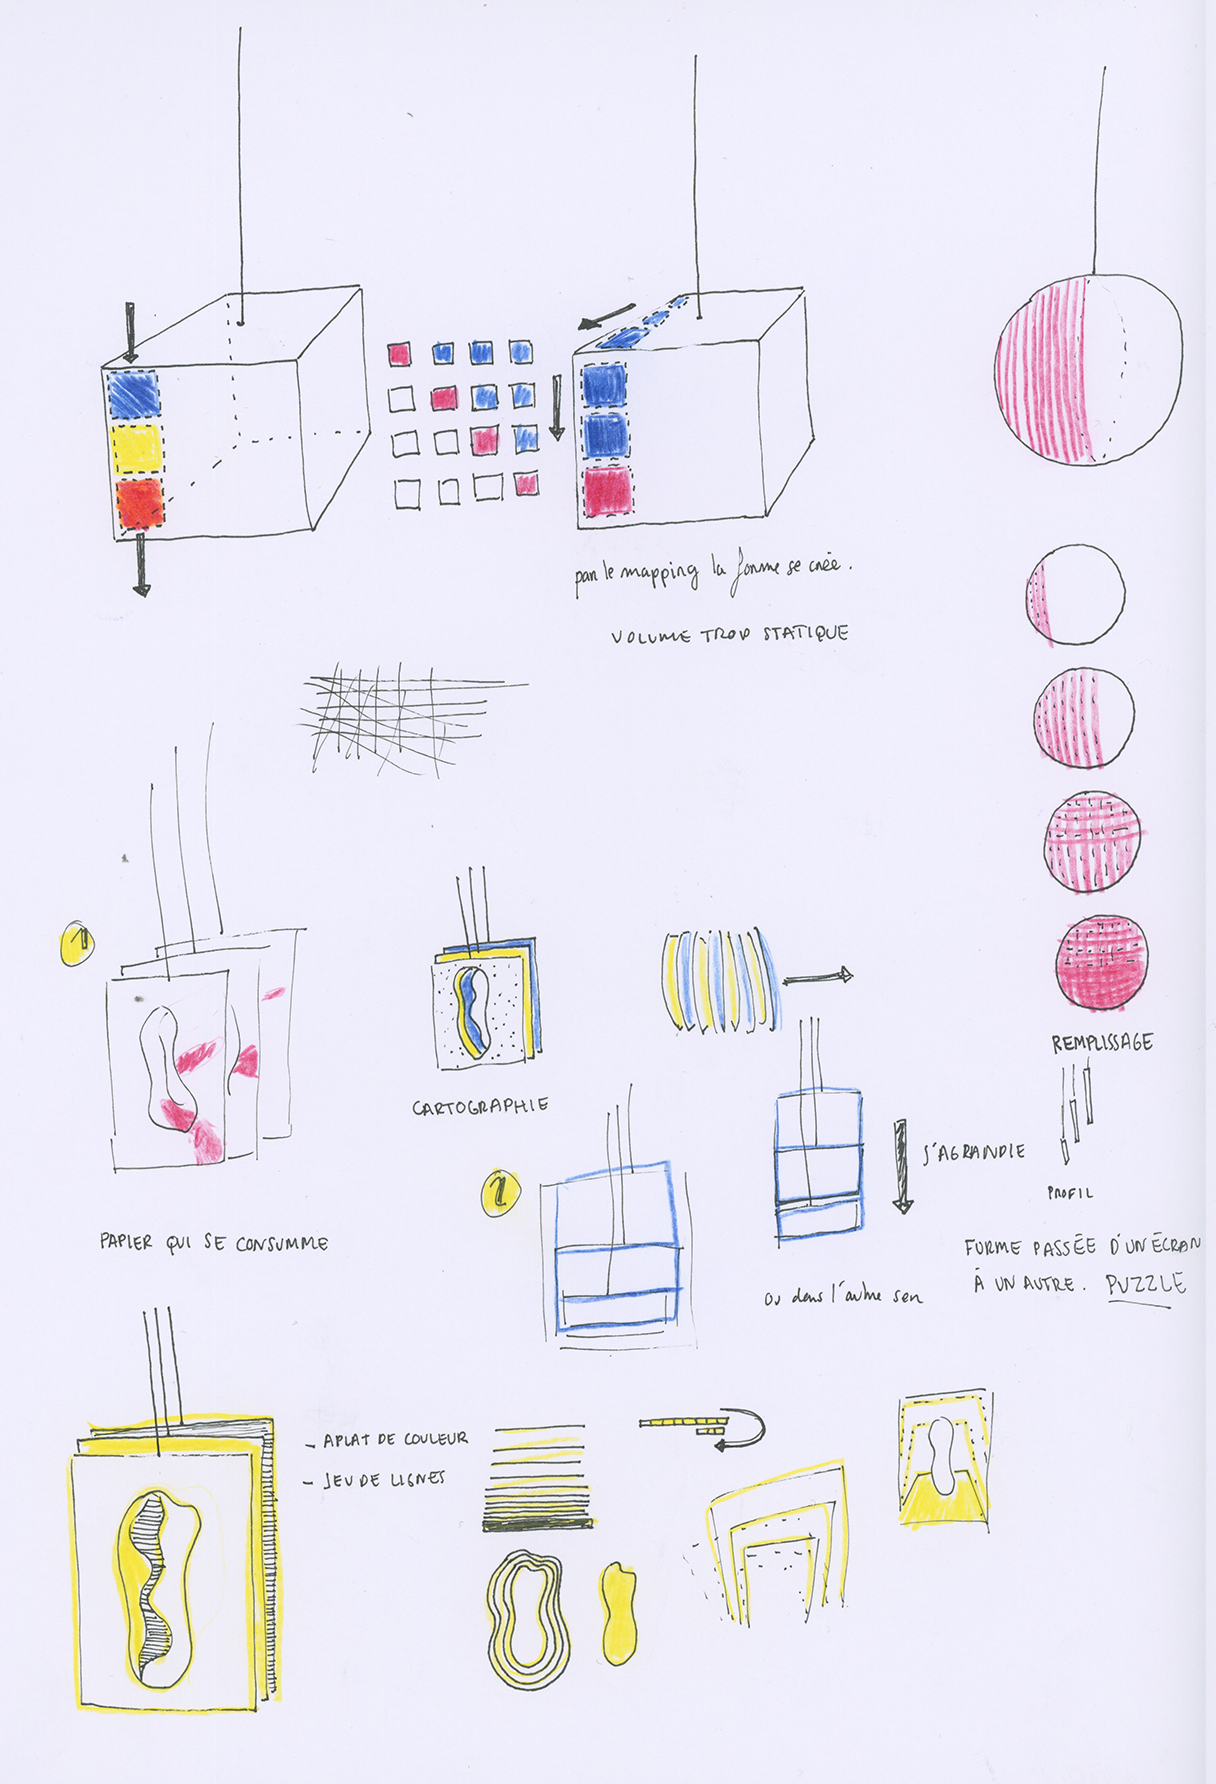 par le mapping la forme se créé.
VOLUME TROP STATIQUE
1
REMPLISSAGE
CARTOGRAPHIE
S'AGRANDIE
PROFIL
2
PAPIER QUI SE CONSUMME
FORME PASSÉE D'UN ÉCRAN
À UN AUTRE. PUZZLE
ou dans l'autre sen
- APLAT DE COULEUR
- JEU DE LIGNES